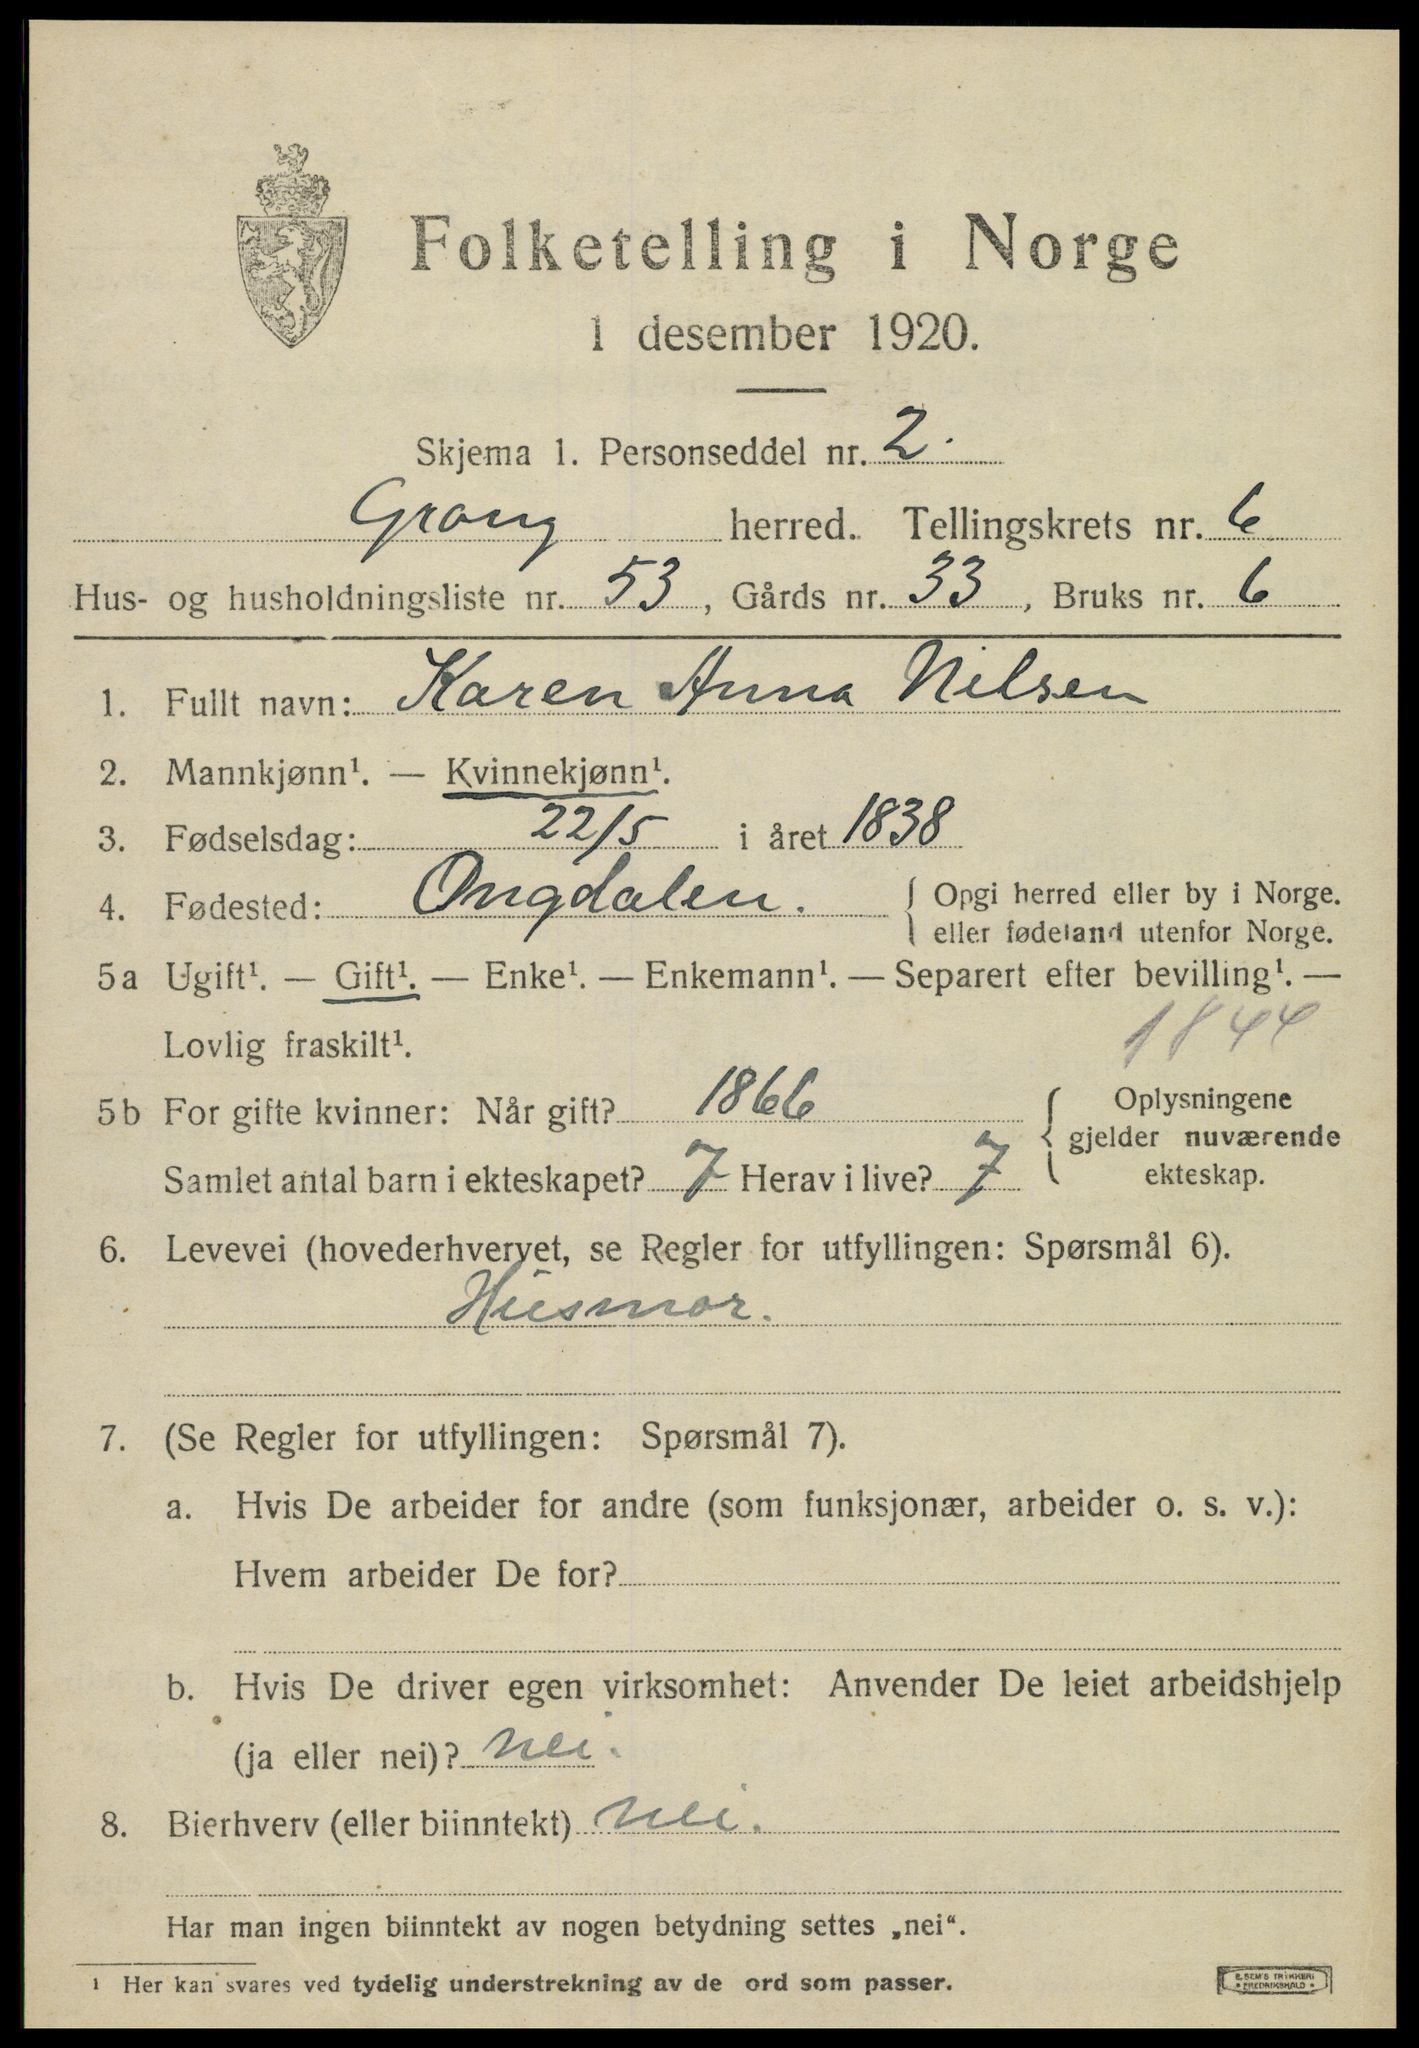 Folketelling i Norge
1 desember 1920.
Skjema 1. Personseddel nr. 2.
Grong herred. Tellingskrets nr. 6
Hus- og husholdningsliste nr. 53, Gårds nr. 33, Bruks nr. 6
1. Fullt navn: Karen Anna Nilsen
2. Mannkjønn¹. — Kvinnekjønn¹.
3. Fødselsdag: 22/5 i året 1838
4. Fødested: Ongdalen. { Opgi herred eller by i Norge.
eller fødeland utenfor Norge.
5a Ugift¹. — Gift¹. — Enke¹. — Enkemann¹. — Separert efter bevilling¹. —
Lovlig fraskilt¹. 1844
5b For gifte kvinner: Når gift? 1866 { Oplysningene
gjelder nuværende
Samlet antal barn i ekteskapet? 7 Herav i live? 7 ekteskap.
6. Levevei (hovederhvervet, se Regler for utfyllingen: Spørsmål 6).
Husmor.
7. (Se Regler for utfyllingen: Spørsmål 7).
a. Hvis De arbeider for andre (som funksjonær, arbeider o. s. v.):
Hvem arbeider De for?
b. Hvis De driver egen virksomhet: Anvender De leiet arbeidshjelp
(ja eller nei)? nei.
8. Bierhverv (eller biinntekt) nei.
Har man ingen biinntekt av nogen betydning settes „nei“.
¹ Her kan svares ved tydelig understrekning av de ord som passer.
E. SEM'S TRYKKERI
• FREDRIKSHALD •